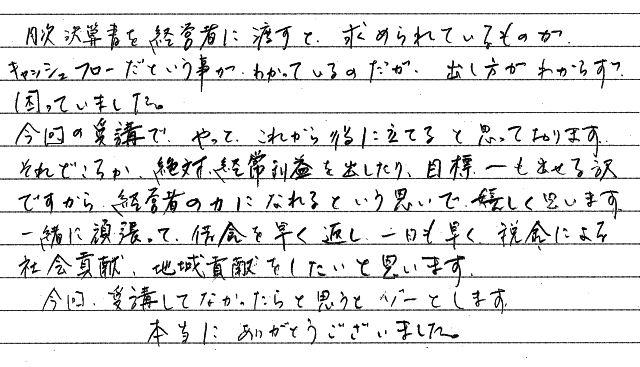 月次決算書を経営者に渡すと、求められているものが
キャッシュフローだという事が、わかっているのだが、出し方がわからずに
困っていました。
今回の受講で、やっと、これから役に立てると思っております
それどころか、絶対、経常利益を出したり、目標 も出せる訳
ですから、経営者の力になれるという思いで、嬉しく思います
一緒に頑張って、借金を早く返し、一日も早く、税金による
社会貢献、地域貢献をしたいと思います。
今回、受講してなかったらと思うとゾーとします。
本当にありがとうございました。